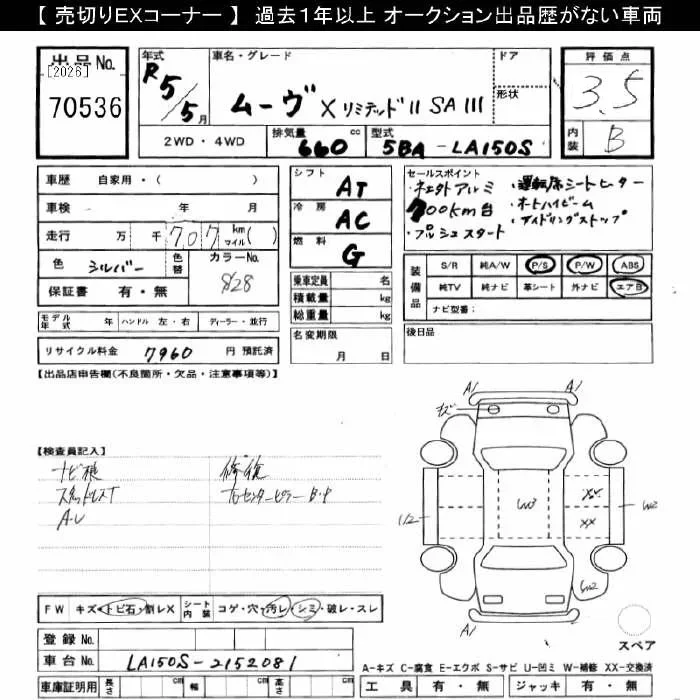 【 売切りEXコーナー 】 過去1年以上 オークション出品歴がない車両
出品No.
[2026]
70536
年式
R5/5月
車名・グレード
ムーヴ X リミテッドII SAIII
ドア
形状
評価点
3.5
内装
B
2WD・4WD
排気量
660 cc
型式
5BA-LA150S
車歴 自家用・( )
車検 年 月
走行 万 千 707 km マイル ( )
色 シルバー
色替
カラーNo.
S28
保証書 有・無
シフト AT
冷房 AC
燃料 G
乗車定員 名
積載量 kg
総重量 kg
セールスポイント
・運転席シートヒーター
700km台 ・オートハイビーム
・プッシュスタート ・アイドリングストップ
装備品
S/R 純A/W P/S P/W ABS
純TV 純ナビ 革シート 外ナビ エアB
ナビ型番:
モデル年式 年 ハンドル 左・右 ディーラー・並行
名変期限
月 日
後日品
リサイクル料金 7960 円 預託済
【出品店申告欄(不良箇所・欠品・注意事項等)】
【検査員記入】
A1 A1
キズ
修復
スタッドレスT
1/2 W3 XX W2
XX
W2
A1
FW キズ・トビ石・割レX シート内装 コゲ・穴・汚レ・シミ・破レ・スレ
登録No.
車台No. LA150S-2152081
車庫証明用 長さ cm 幅 cm 高さ cm
スペア
A-キズ C-腐食 E-エクボ S-サビ U-凹ミ W-補修 XX-交換済
工具 有・無 ジャッキ 有・無